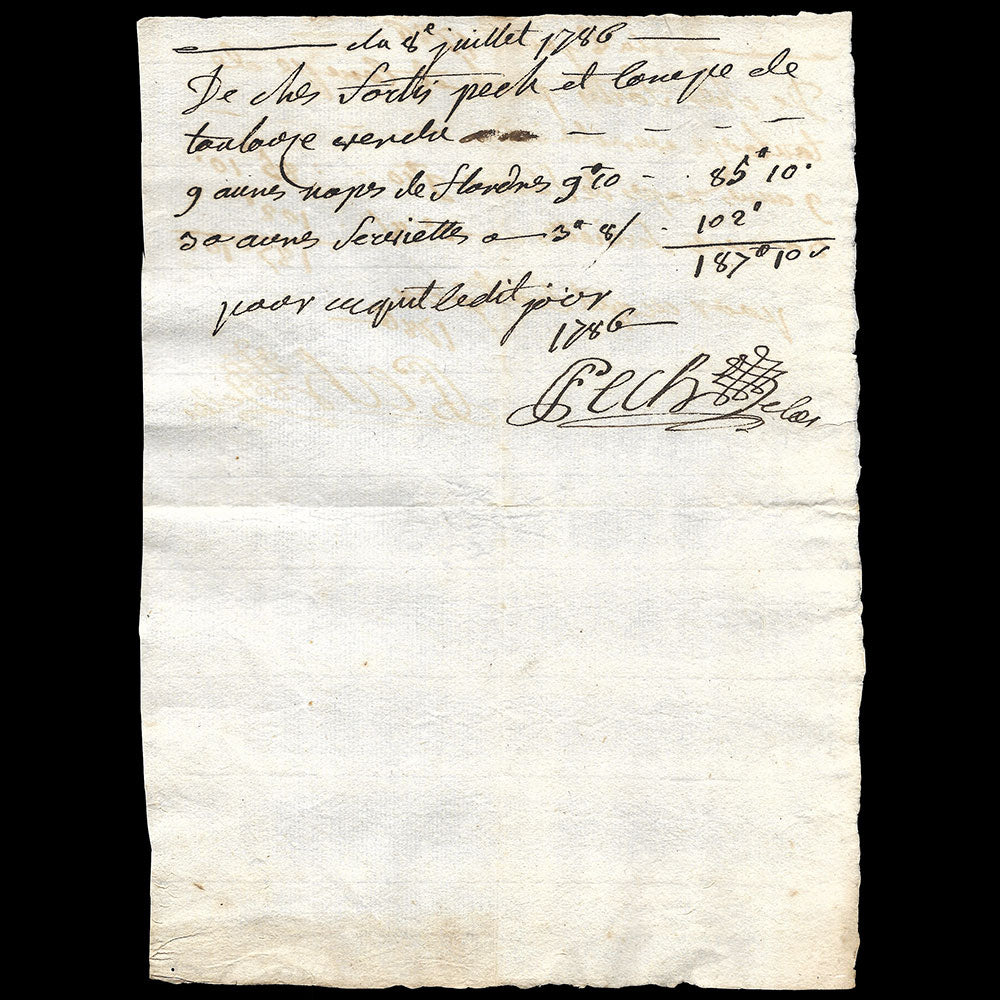 du 8e juillet 1786
De ches fortis pech et Compe de
toulouze vendu
9 aunes napes de flandres 9# 10 - 85# 10s
30 aunes serviettes a 3# 8s 102#
187# 10s
pour acquit ledit jour
1786
Pech